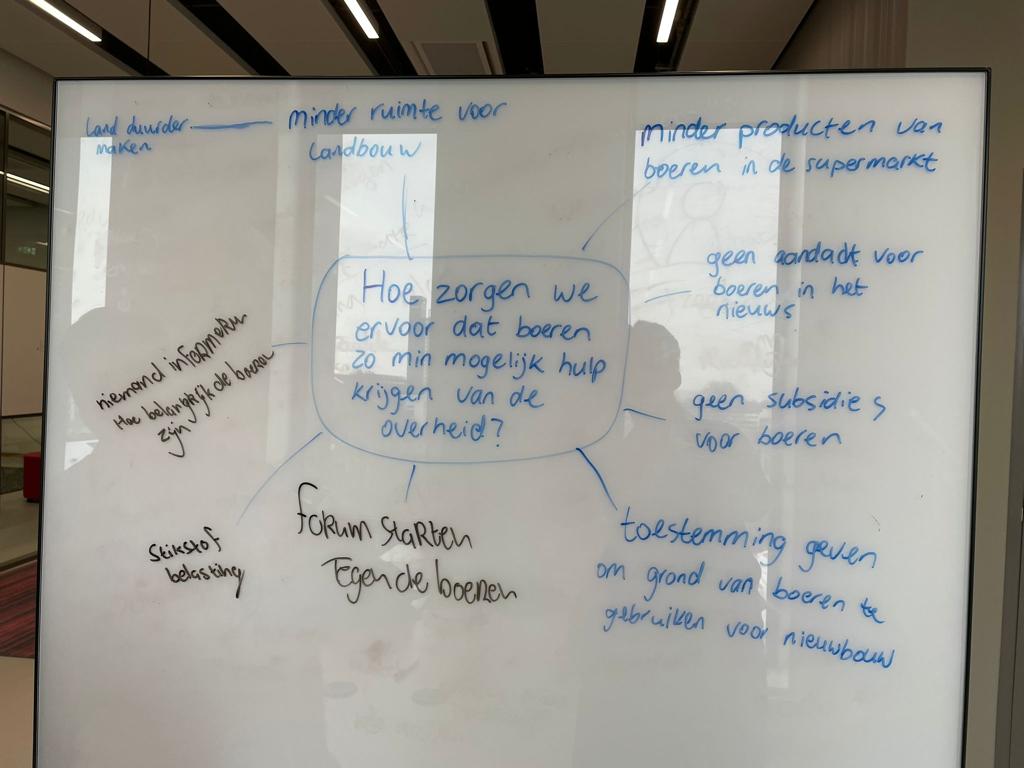 Land duurder
maken
minder ruimte voor
landbouw
minder producten van
boeren in de supermarkt
geen aandacht voor
boeren in het
nieuws
Hoe zorgen we
ervoor dat boeren
zo min mogelijk hulp
krijgen van de
overheid?
niemand informeren
Hoe belangrijk de boeren
zijn
geen subsidies
voor boeren
Stikstof
belasting
forum starten
Tegen de boeren
toestemming geven
om grond van boeren te
gebruiken voor nieuwbouw